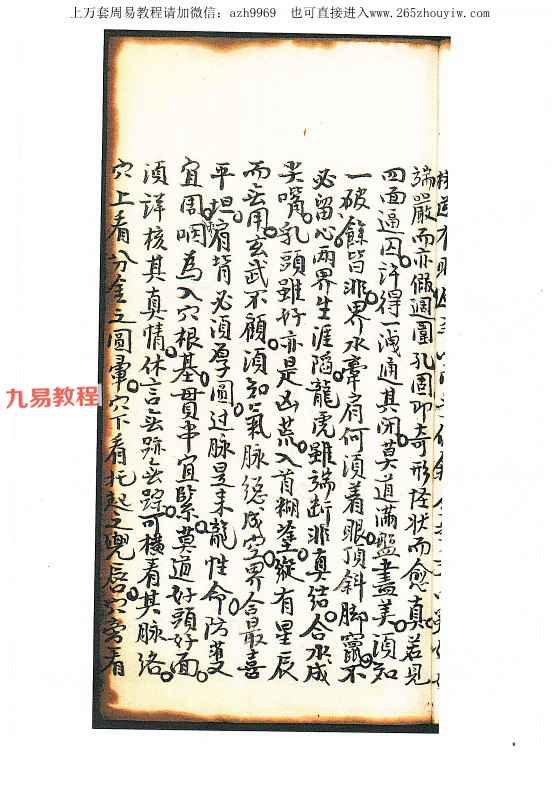 上万套周易教程请加微信：azh9969 也可直接进入www.265zhouyiw.com
端嚴而亦假週圍孔固即奇形怪状而愈真。若見
四面逼囚。許得一洩通其闭。莫道滿盤盡美。須知
一破。餘皆非。界水牽肩何須着眼頂斜脚竄。不
必留心兩界生涯陷。龍虎雖端断非真结。合水成
尖嘴。乳頭雖好亦是凶。荒入首糊塗。縱有星辰
而無用。玄武不顧須知氣脉總成空。界合最喜
平坦。肩背必須厚圆。过脉是来龍性命。防
宜周。咽為入穴根基。貫串宜緊。莫道好頭好面。
須詳核其真情。休言無跡無踪。可横看其脉络。
穴上看分金之圓暈。穴下看托起之兜唇。穴旁看
九易教程